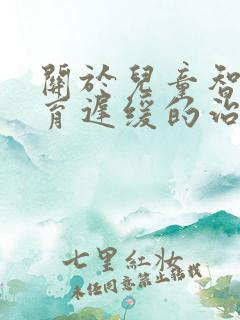 關於兒童智
育遲缓的治
七里紅妝
未經同意禁止轉載